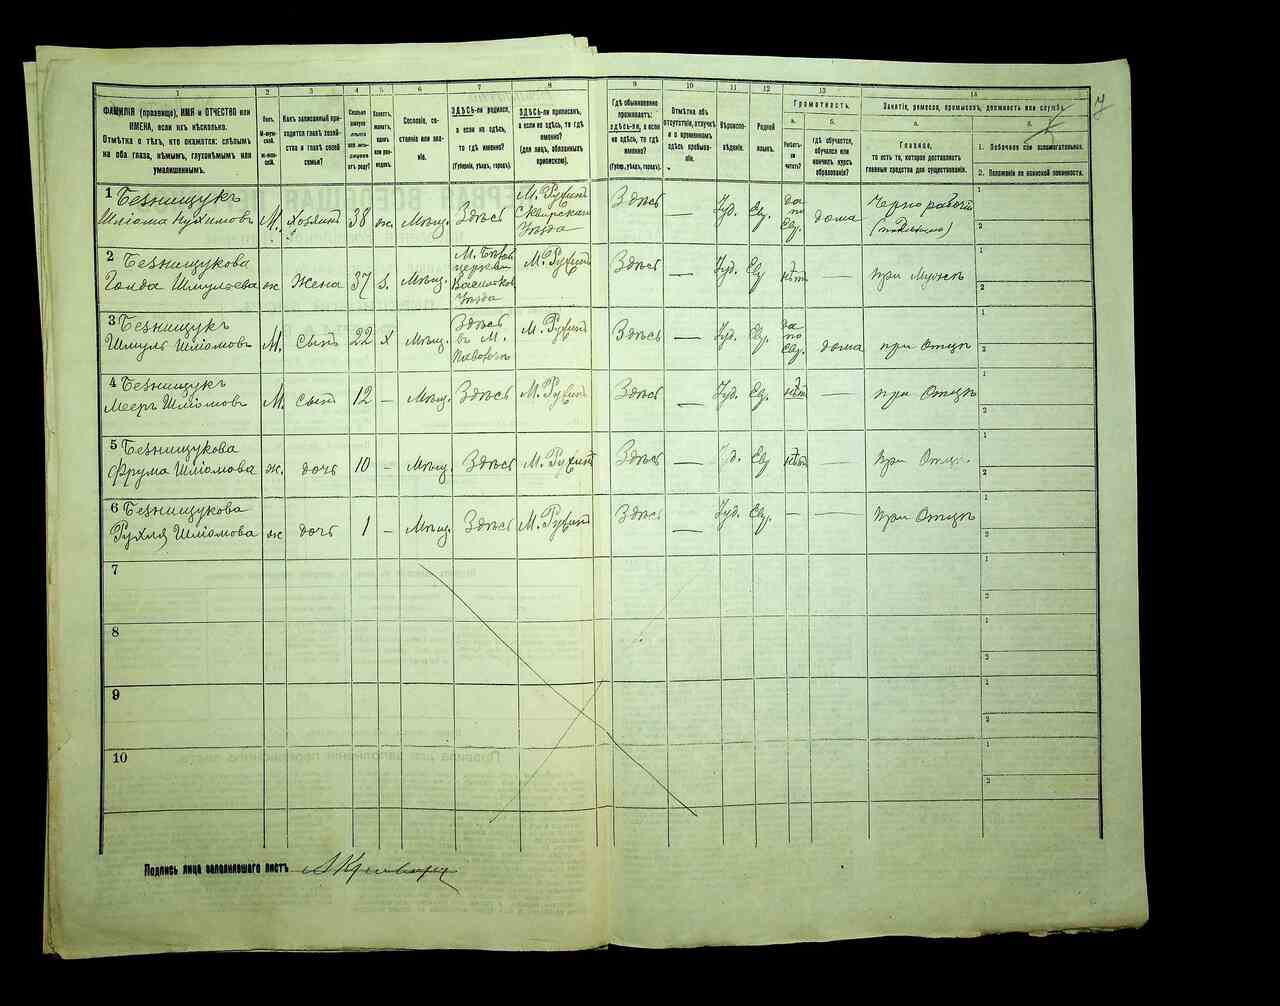 1 2 3 4 5 6 7 8 9 10 11 12 13 14
ФАМИЛІЯ (прозвище), ИМЯ и ОТЧЕСТВО или
ИМЕНА, если ихъ нѣсколько.
Отмѣтка о тѣхъ, кто окажется: слѣпымъ
на оба глаза, нѣмымъ, глухонѣмымъ или
умалишеннымъ.
Полъ.
М-мужской.
Ж-женскій.
Какъ записанный приходится главѣ хозяйства и главѣ своей семьи?
Сколько минуло лѣтъ или мѣсяцевъ отъ роду?
Холостъ, женатъ, вдовъ или разведенъ.
Сословіе, состояніе или званіе.
ЗДѢСЬ-ли родился,
а если не здѣсь,
то гдѣ именно?
(Губернія, уѣздъ, городъ).
ЗДѢСЬ-ли приписанъ,
а если не здѣсь, то гдѣ
именно?
(для лицъ, обязанныхъ
припискою).
Гдѣ обыкновенно
проживаетъ:
здѣсь-ли, а если
не здѣсь, то гдѣ
именно?
(Губер., уѣздъ, городъ).
Отмѣтка объ
отсутствіи, отлучкѣ
и о временномъ
здѣсь пребываніи.
Вѣроисповѣданіе.
Родной
языкъ.
Грамотность.
а.
Умѣетъ-ли
читать?
б.
гдѣ обучается,
обучался или
кончилъ курсъ
образованія?
Занятіе, ремесло, промыселъ, должность или служба.
а.
Главное,
то есть то, которое доставляетъ
главныя средства для существованія.
б.
1. Побочное или вспомогательное.
2. Положеніе по воинской повинности.
7
1 Безнищукъ
Шліома Нухимовъ М. Хозяинъ 38 ж. Мѣщ. Здѣсь М. Ружинъ Сквирскаго Уѣзда Здѣсь — Іуд. Евр. да по Евр. дома Чернорабочій
1
2
2 Безнищукова
Голда Шмулева ж Жена 37 з. Мѣщ. Васильков Уѣзда М. Ружинъ Здѣсь — Іуд. Евр нѣтъ — При Мужѣ
1
2
3 Безнищукъ
Шмуль Шліомовъ М. Сынъ 22 х Мѣщ. Здѣсь въ М. М. Ружинъ Здѣсь — Іуд. Евр. да по Евр. дома при Отцѣ
1
2
4 Безнищукъ
Мееръ Шліомовъ М. Сынъ 12 — Мѣщ. Здѣсь М. Ружинъ Здѣсь — Іуд. Евр. нѣтъ — при Отцѣ
1
2
5 Безнищукова
Фрума Шліомова ж. дочь 10 — Мѣщ. Здѣсь М. Ружинъ Здѣсь — Іуд. Евр нѣтъ — При Отцѣ
1
2
6 Безнищукова
Рухля Шліомова ж дочь 1 — Мѣщ. Здѣсь М. Ружинъ Здѣсь — Іуд. Евр. — — При Отцѣ
1
2
7
1
2
8
1
2
9
1
2
10
1
2
Подпись лица заполнившаго листъ